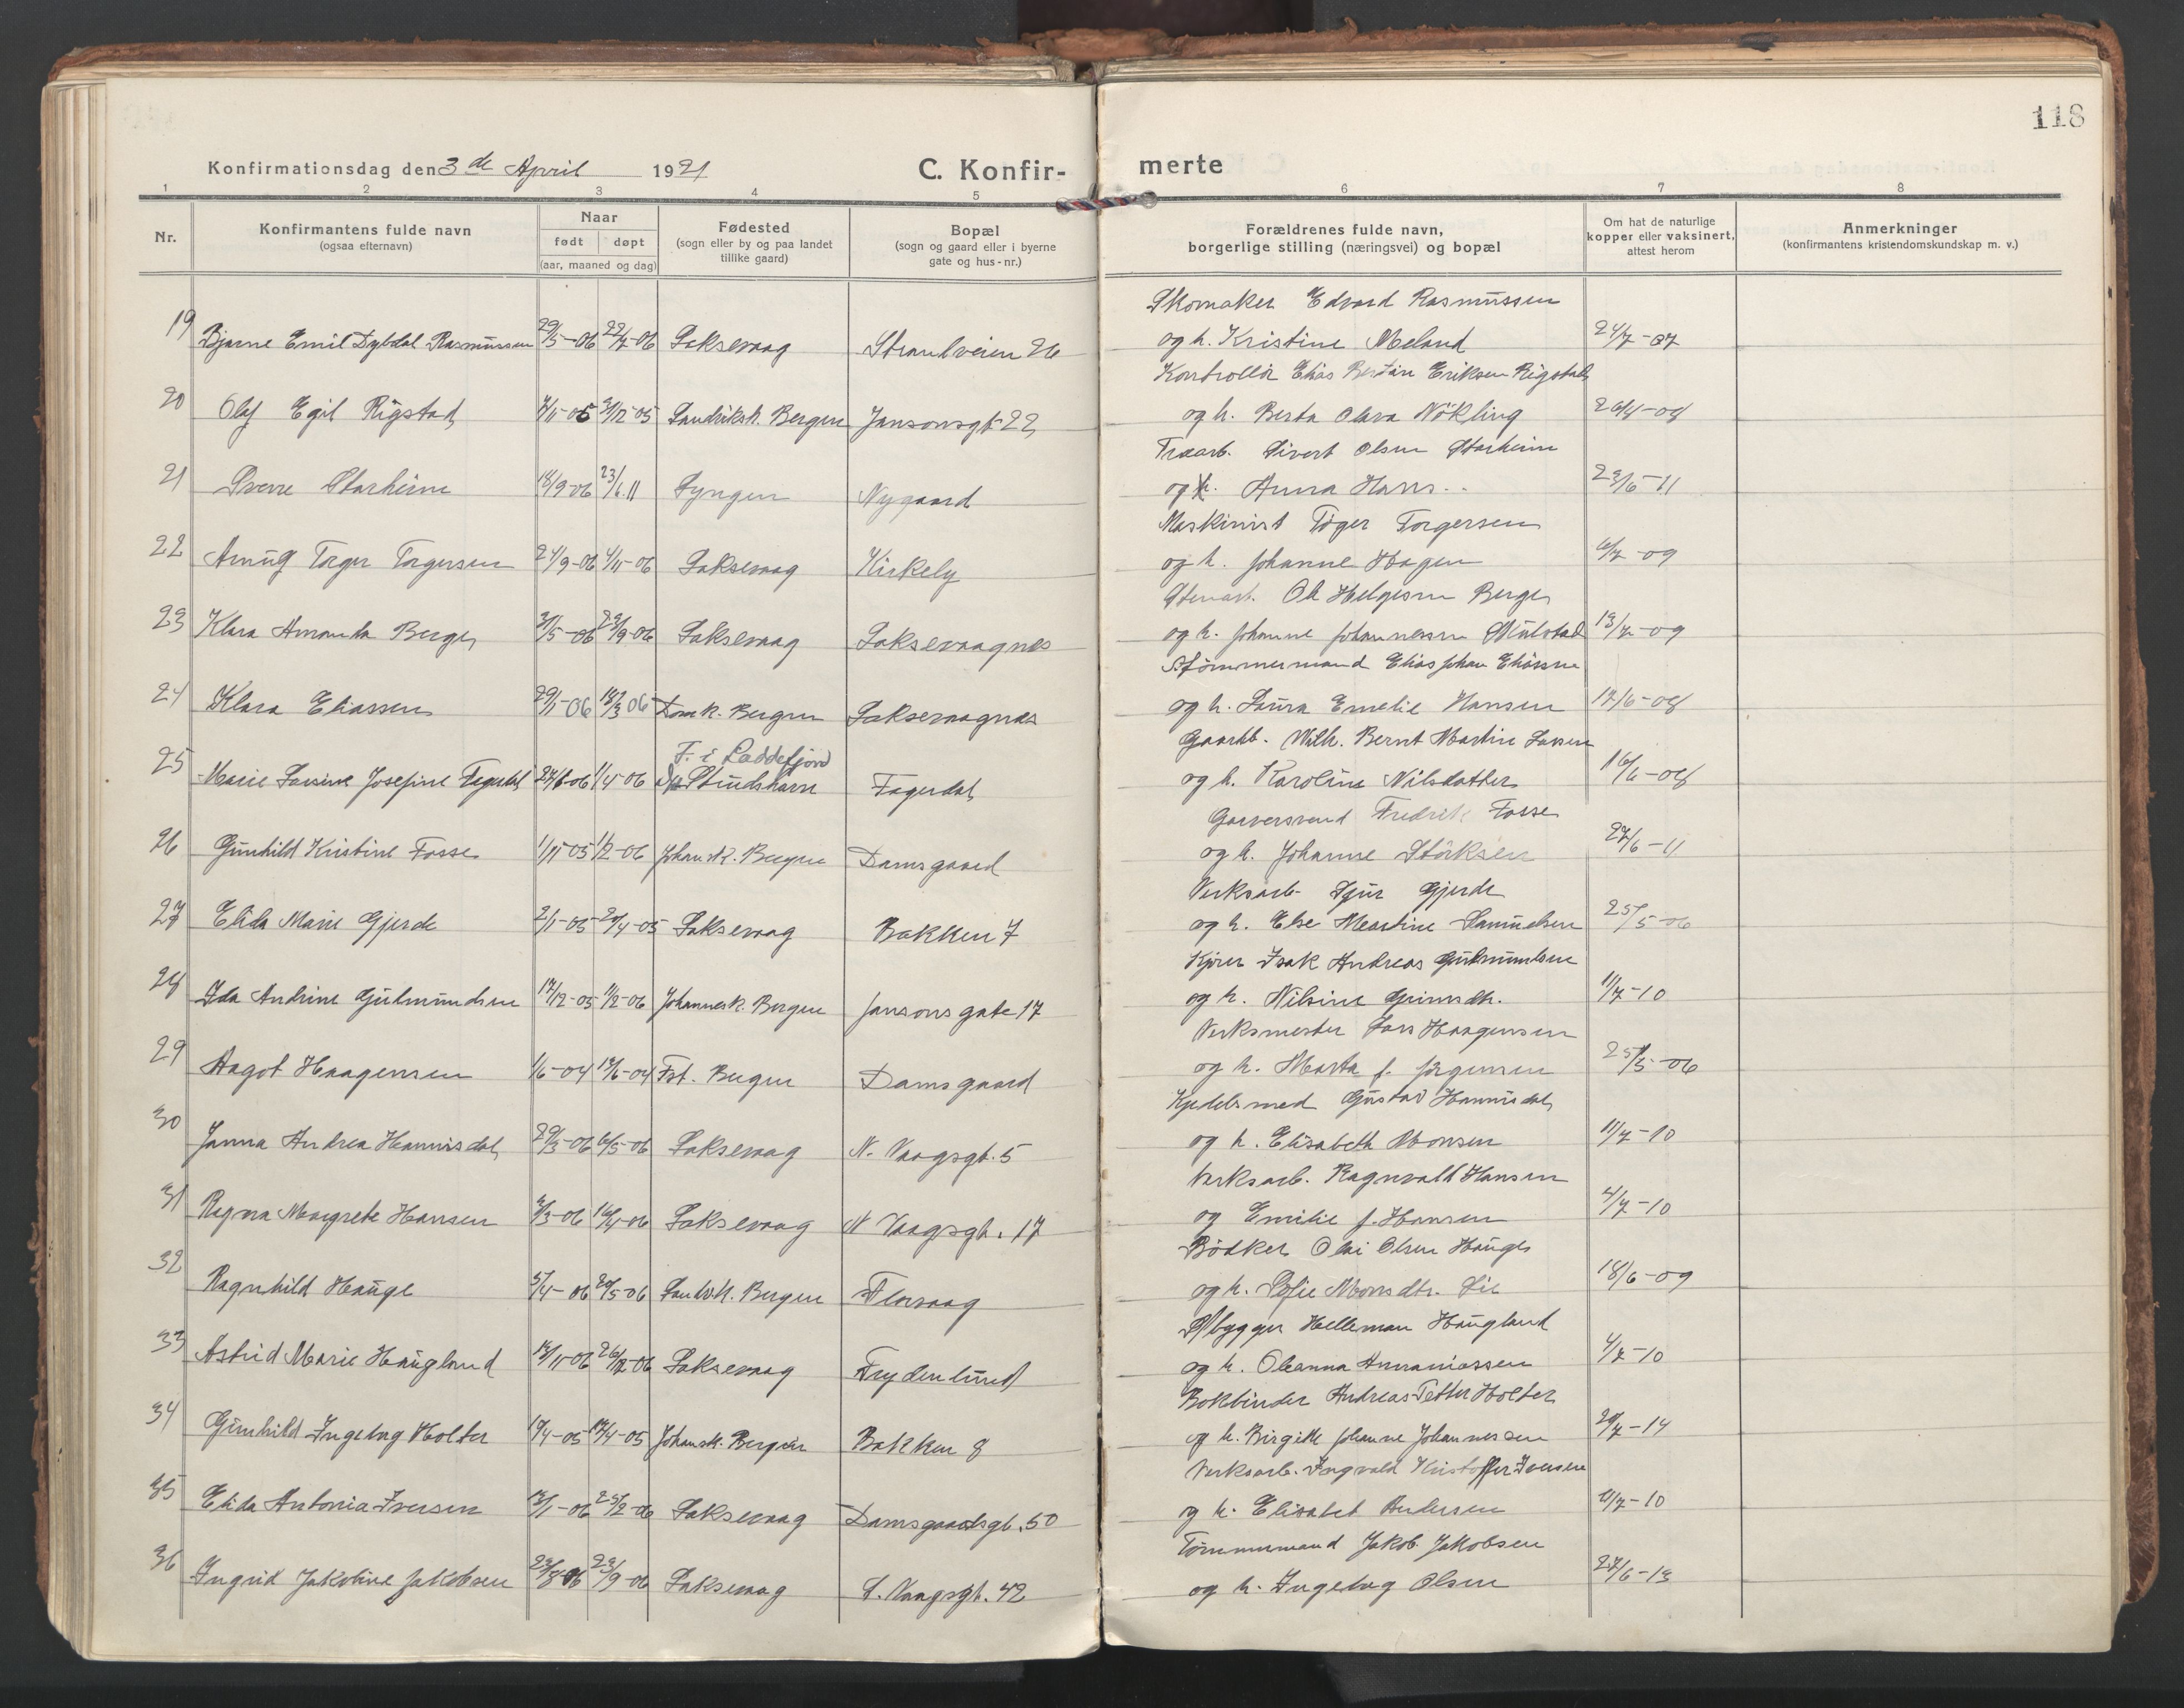 118
Konfirmationsdag den 3de April 1921 C. Konfirmerte
1 2 3 4 5 6 7 8
Nr.
Konfirmantens fulde navn (ogsaa efternavn)
Naar født døpt (aar, maaned og dag)
Fødested (sogn eller by og paa landet tillike gaard)
Bopæl (sogn og gaard eller i byerne gate og hus-nr.)
Forældrenes fulde navn, borgerlige stilling (næringsvei) og bopæl
Om hat de naturlige kopper eller vaksinert, attest herom
Anmerkninger (konfirmantens kristendomskundskap m. v.)
Skomaker Edvard Rasmussen
19 Bjarne Emil Dybdal Rasmussen 29/5-06 22/7-06 Laksevaag Strandveien 26 og h. Kristine Meland 24/7-07
Kontrollør Elias Eriksen Rigstad
20 Olaf Egil Rigstad 7/11-05 31/12-05 Bergen Jansonsgt 22 og h. Berta Olava Nökling 26/4-08
Træarb. Sivert Olsen Starheim
21 Sverre Starheim 18/9-06 23/6.11 Lyngen Nygaard og h. Anna Hans.. 23/6-11
Maskinist Torger Torgersen
22 Torger Torgersen 24/9-06 4/11-06 Laksevaag Kirkely og h. Johanne Hagen 6/7-09
Stenarb. Ole Helgesen Berge
23 Klara Amanda Berge 31/5-06 23/9-06 Laksevaag Laksevaagnes og h. Johanne Johannessen 13/7-09
Tømmermand Elias Johan Eliassen
24 Klara Eliassen 29/1-06 18/3 06 Domk. Bergen Laksevaagnes og h. Laura Emelie Hansen 17/6-08
F. i Laddefjord
Gaardb. Wilh. Bernt Martin Larsen
25 Marie Lovise Josefine Fagerdal 27/1-06 1/4-06 Dp Studshavn Fagerdal og h. Karoline Nilsdatter 16/6-08
Garversvend Fredrik Fosse
26 Gunhild Kristine Fosse 1/11-05 1/2-06 Johansk. Bergen Damsgaard og h. Johanne Störksen 27/6-11
Verksarb. Sjur Gjerde
27 Elida Marie Gjerde 2/1-05 24/4-05 Laksevaag Bakken 7 og h. Else Martine Samuelsen 25/5-06
Kjører Isak Andreas Gudmundsen
28 Ida Andrine Gudmundsen 17/12-05 11/2-06 Johannesk. Bergen Jansons gate 17 og h. Nilsine Grimsdtr. 11/7-10
Verksmester Lars Haagensen
29 Aagot Haagensen 1/6-04 19/6-04 Fst. Bergen Damsgaard og h. Marta f. Jörgensen 25/5-06
Kjedelsmed Gustav Hannisdal
30 Janna Andrea Hannisdal 29/3-06 6/5-06 Laksevaag N. Vaagsgt. 5 og h. Elisabeth Monsen 11/7-10
Verksarb. Ragnvald Hansen
31 Ragna Margrete Hansen 3/3-06 16/4-06 Laksevaag N Vaagsgt. 17 og Emilie f. Hansen 4/7-10
Bödker Olai Olsen Hauge
32 Ragnhild Hauge 5/4-06 20/5-06 Bergen Florvaag og h. Sofie Monsdtr. Lie 18/6-09
Sk/bygger Helleman Haugland
33 Astrid Marie Haugland 18/11-06 26/12-06 Laksevaag Frydenlund og h. Oleanna Annaniassen 4/7-10
Bokbinder Andreas Petter Holter
34 Gunhild Ingeborg Holter 10/4-05 17/4-05 Johansk. Bergen Bakken 8 og h. Birgitte Johanne Johannessen 20/7-14
Verksarb. Ingvald Kristoffer Iversen
35 Elida Antonia Iversen 12/1-06 25/2-06 Laksevaag Damsgaardsgt. 50 og h. Elisabet Andersen 11/7-10
Tömmermand Jakob Jakobsen
36 Ingrid Jakobine Jakobsen 23/8-06 23/9-06 Laksevaag S. Vaagsgt. 42 og h. Ingeborg Olsen 27/6-13